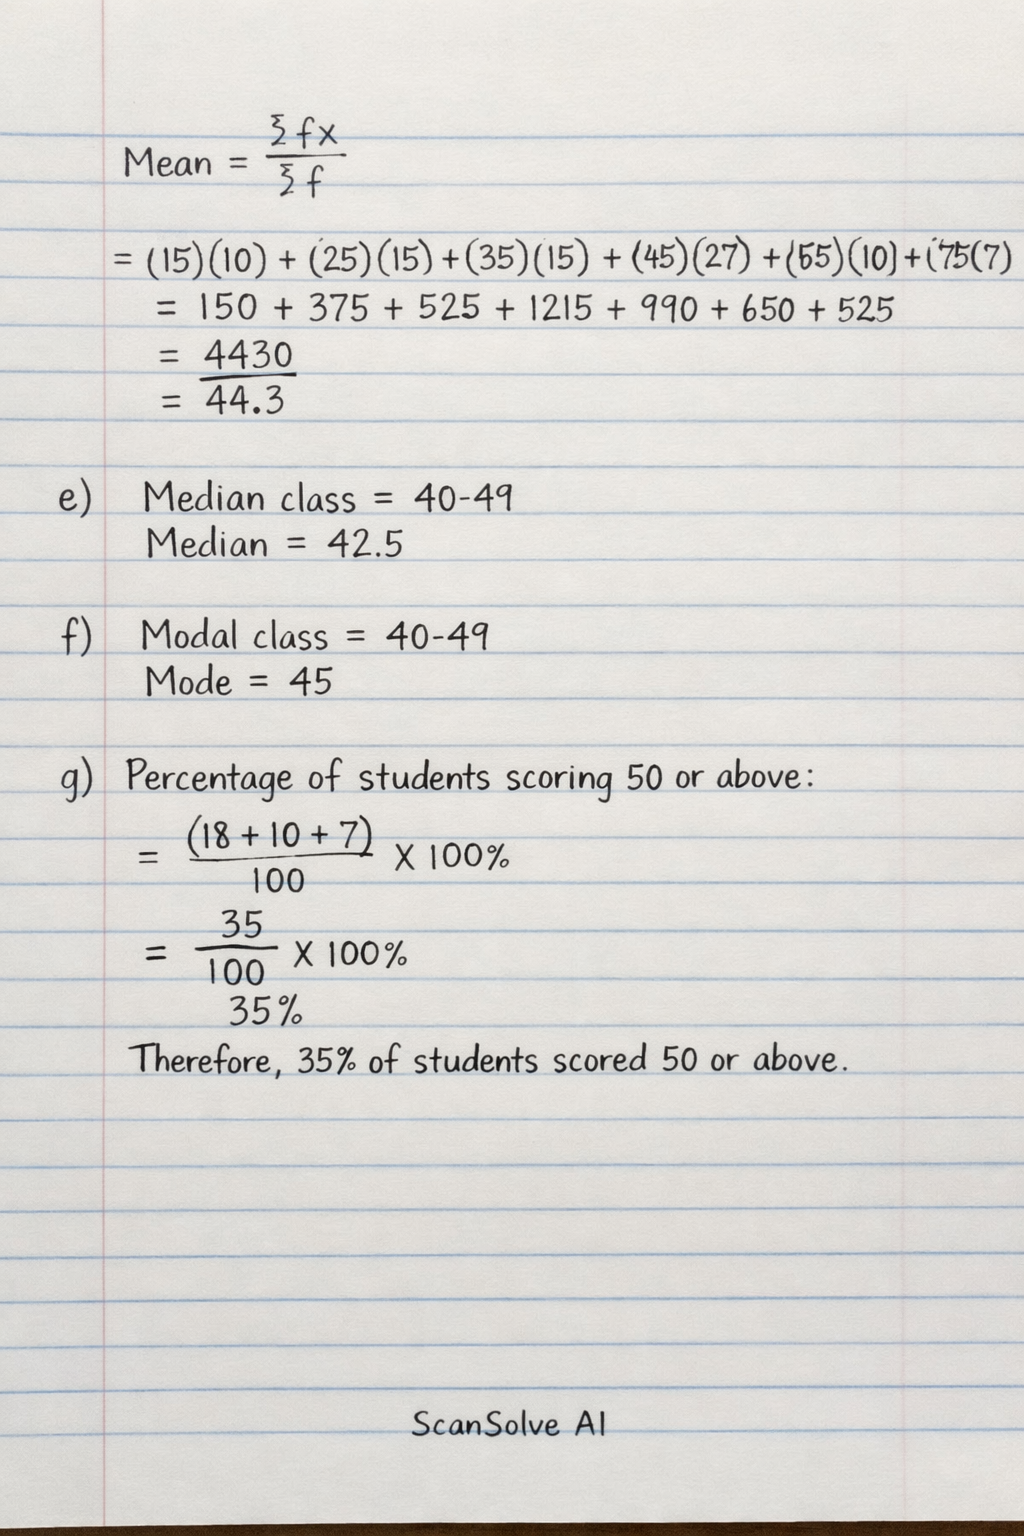 Mean = Σ fx / Σ f
= (15)(10) + (25)(15) + (35)(15) + (45)(27) + (65)(10) + (75(7)
= 150 + 375 + 525 + 1215 + 990 + 650 + 525
= 4430
= 44.3
e) Median class = 40-49
Median = 42.5
f) Modal class = 40-49
Mode = 45
g) Percentage of students scoring 50 or above:
= (18 + 10 + 7) / 100 X 100%
= 35 / 100 X 100%
35%
Therefore, 35% of students scored 50 or above.
ScanSolve AI